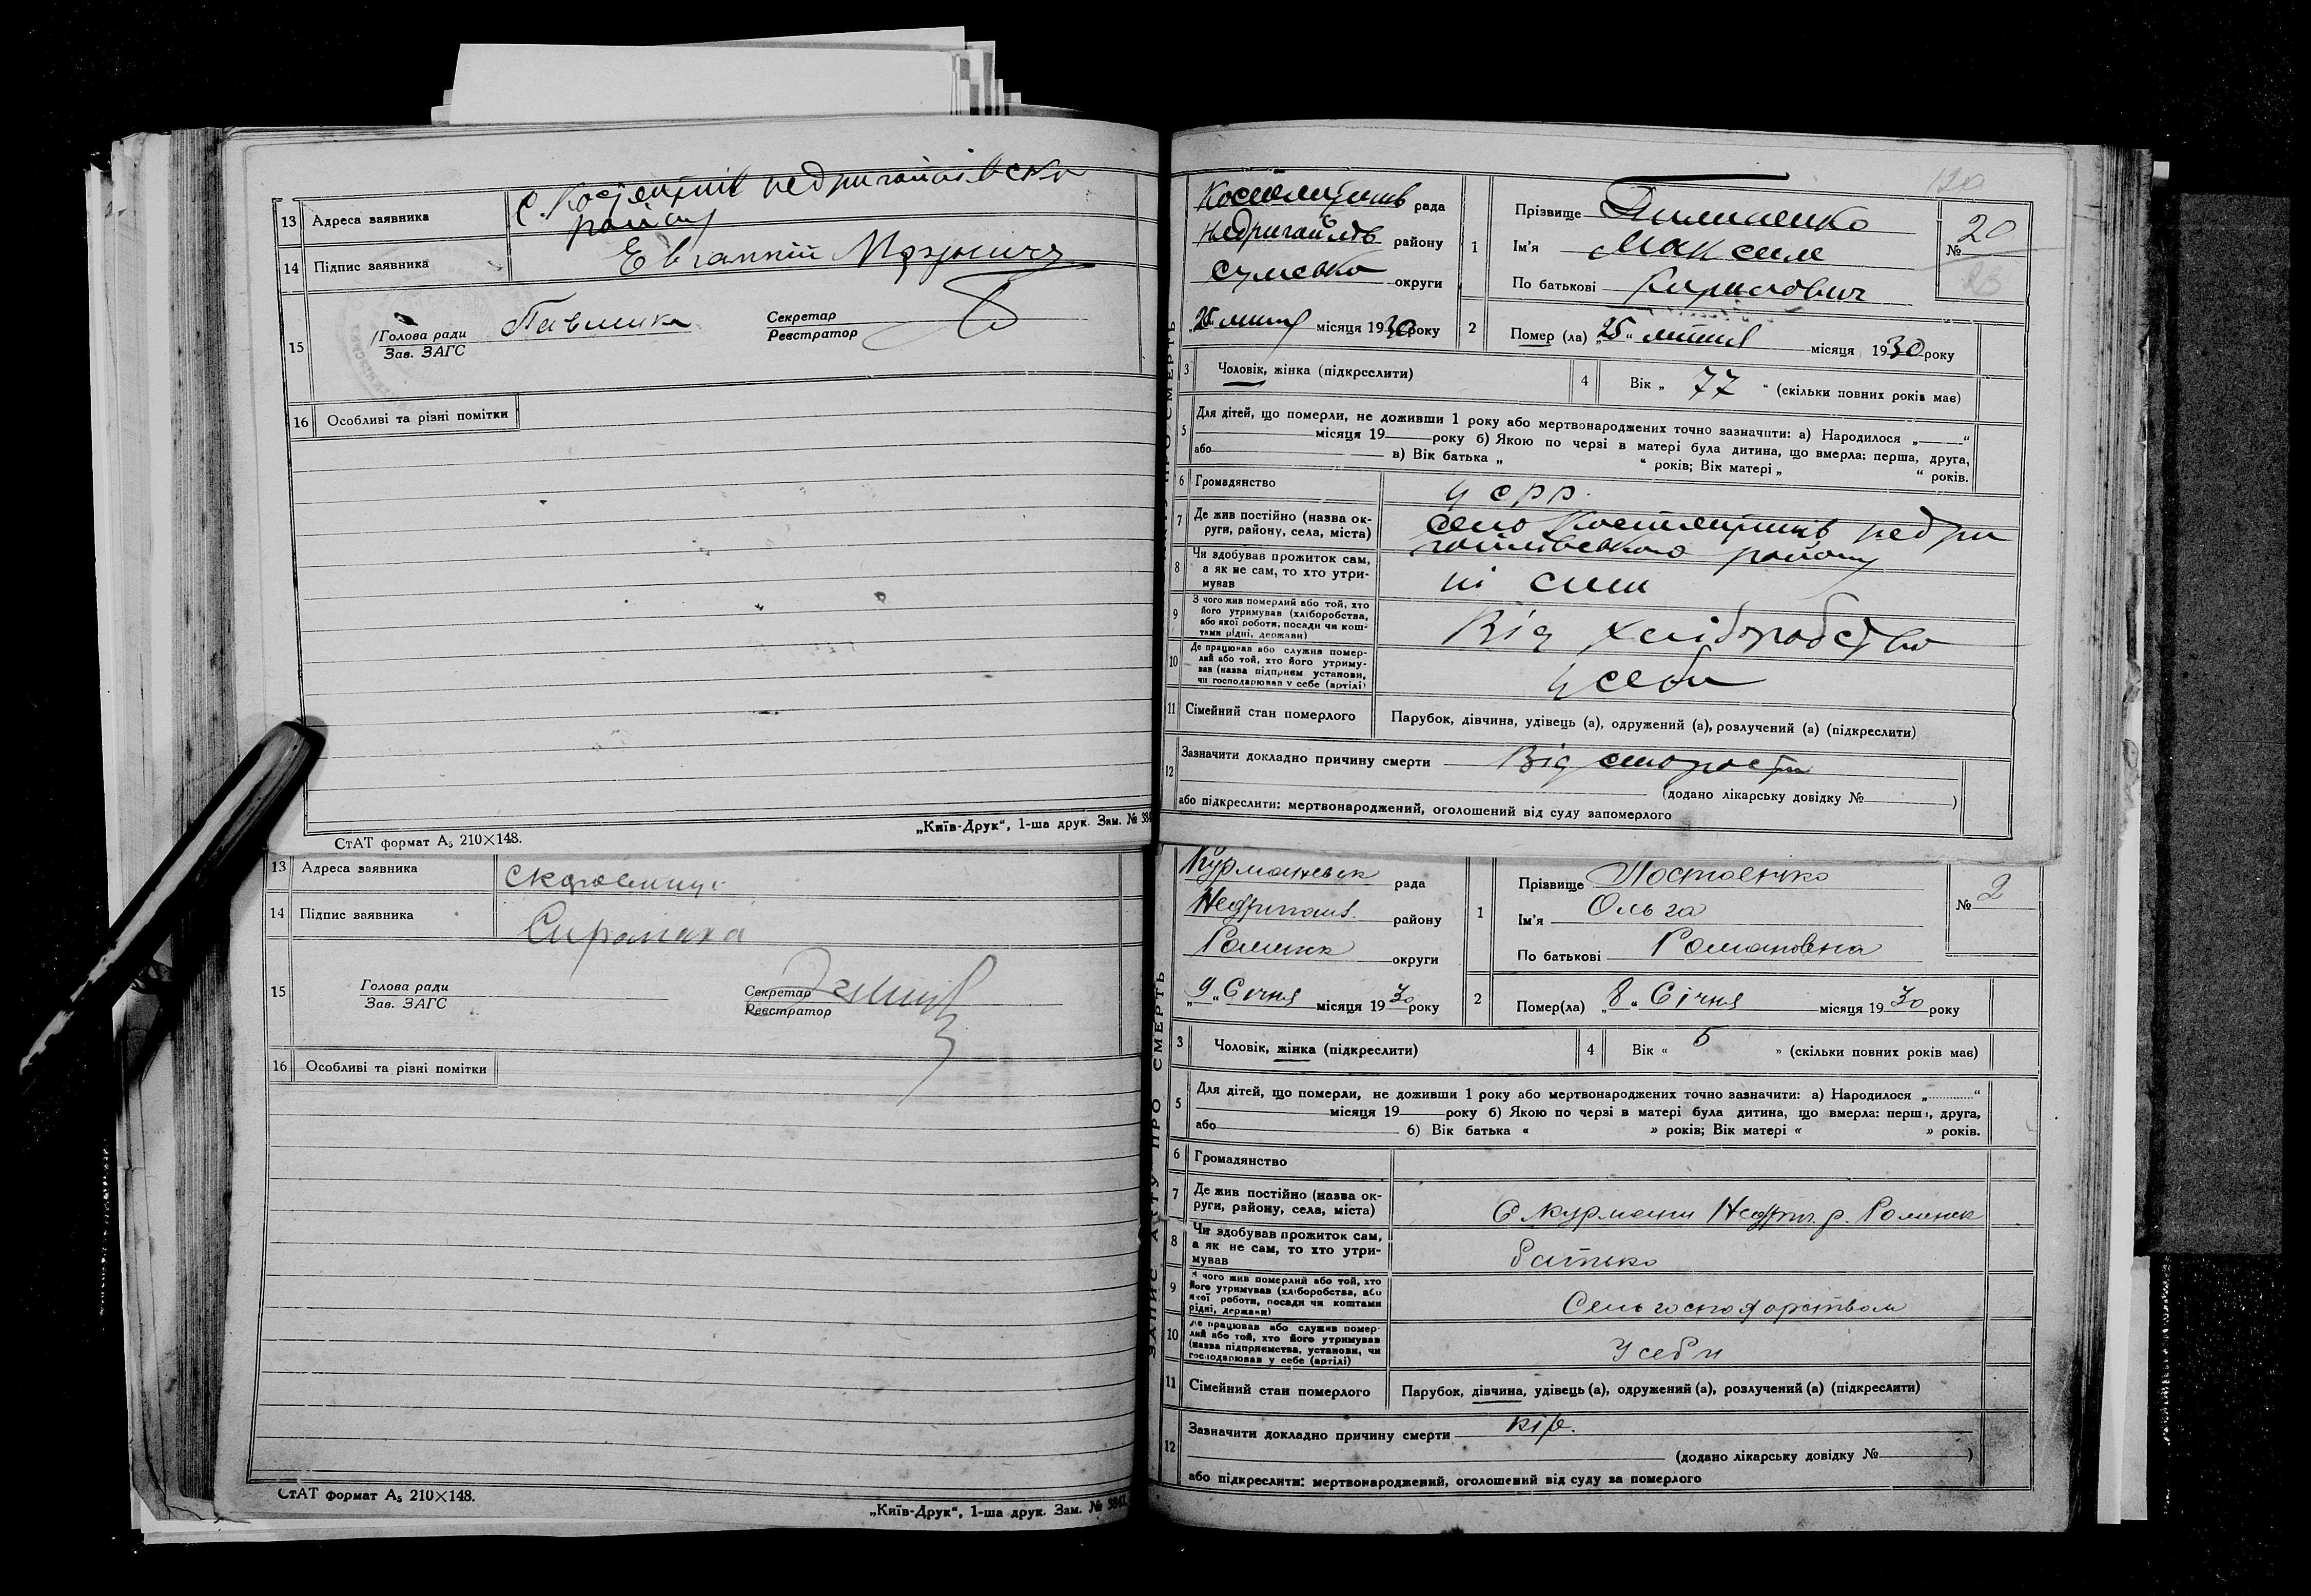 13 Адреса заявника с. Костянтинів недригайлівськ
району
14 Підпис заявника
15 Голова ради
Зав. ЗАГС
Павленко
Секретар
Реєстратор
16 Особливі та різні помітки
СтАТ формат А₅ 210×148.
„Київ-Друк“, 1-ша друк. Зам. №
13 Адреса заявника
14 Підпис заявника
15 Голова ради
Зав. ЗАГС
Секретар
Реєстратор
16 Особливі та різні помітки
СтАТ формат А₅ 210×148.
„Київ-Друк“, 1-ша друк. Зам. №
120
рада
Недригайлів району
округи
місяця 1930 року
1 Прізвище Пилипенко
Ім'я Максим
По батькові Кирилович
№ 20
2 Помер (ла) „25“ липня місяця 1930 року
3 Чоловік, жінка (підкреслити)
4 Вік „ 77 “ (скільки повних років має)
5 Для дітей, що померли, не доживши 1 року або мертвонароджених точно зазначити: а) Народилося „ “
місяця 19 року б) Якою по черзі в матері була дитина, що вмерла: перша, друга,
або в) Вік батька „ “ років; Вік матері „ “ років.
6 Громадянство УСРР.
7 Де жив постійно (назва ок-
руги, району, села, міста)
село Костянтинів недри
гайлівського району
8 Чи здобував прожиток сам,
а як не сам, то хто утри-
мував
ні син
9 З чого жив померлий або той, хто
його утримував (хліборобства,
або якої роботи, посади чи кош-
тами рідні, держави)
Від хліборобства
10 Де працював або служив помер-
лий або той, хто його утриму-
вав (назва підприєм установи,
чи господарював у себе (артілі)
у себе
11 Сімейний стан померлого Парубок, дівчина, удівець (а), одружений (а), розлучений (а) (підкреслити)
12 Зазначити докладно причину смерти Від старости
(додано лікарську довідку № )
або підкреслити: мертвонароджений, оголошений від суду запомерлого
ЗАПИС АКТУ ПРО СМЕРТЬ
Курманівск рада
Недригайл. району
Роменск округи
„9“ Січня місяця 1930 року
1 Прізвище
Ім'я Ольга
По батькові Романовна
№ 2
2 Помер(ла) „8“ Січня місяця 1930 року
3 Чоловік, жінка (підкреслити)
4 Вік « 5 » (скільки повних років має)
5 Для дітей, що померли, не доживши 1 року або мертвонароджених точно зазначити: а) Народилося „ “
місяця 19 року б) Якою по черзі в матері була дитина, що вмерла: перша, друга,
або б) Вік батька « » років; Вік матері « » років.
6 Громадянство
7 Де жив постійно (назва ок-
руги, району, села, міста)
С Курмани Недриг. р. Роменск
8 Чи здобував прожиток сам,
а як не сам, то хто утри-
мував
батько
9 З чого жив померлий або той, хто
його утримував (хліборобства, або
якої роботи, посади чи коштами
рідні, держави)
Сельгосподарством
10 Де працював або служив помер-
лий або той, хто його утримував
(назва підприємства, установи, чи
господарював у себе (артілі)
У себе
11 Сімейний стан померлого Парубок, дівчина, удівець (а), одружений (а), розлучений (а) (підкреслити)
12 Зазначити докладно причину смерти кір.
(додано лікарську довідку № )
або підкреслити: мертвонароджений, оголошений від суду за померлого